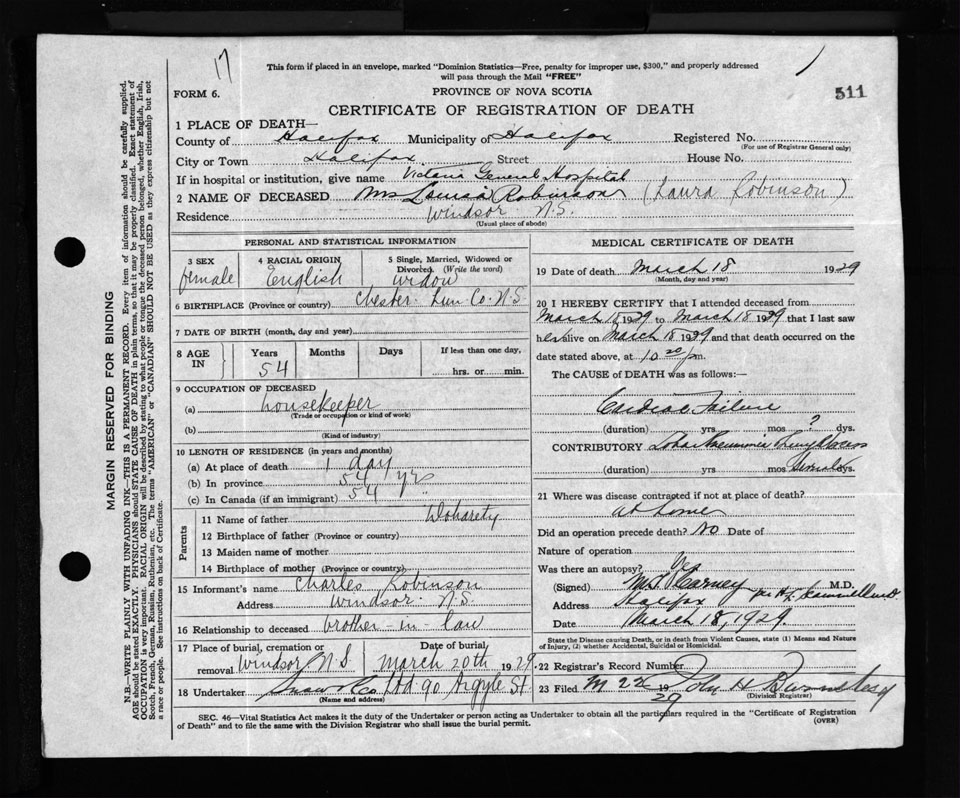 17
This form if placed in an envelope, marked "Dominion Statistics—Free, penalty for improper use, $300," and properly addressed
will pass through the Mail "FREE"
FORM 6.
PROVINCE OF NOVA SCOTIA
511
CERTIFICATE OF REGISTRATION OF DEATH
1 PLACE OF DEATH—
County of Halifax Municipality of Halifax Registered No.
(For use of Registrar General only)
City or Town Halifax Street House No.
If in hospital or institution, give name Victoria General Hospital
2 NAME OF DECEASED Mrs Louisa Robinson (Laura Robinson)
Residence Windsor N.S.
(Usual place of abode)
PERSONAL AND STATISTICAL INFORMATION
3 SEX
female
4 RACIAL ORIGIN
English
5 Single, Married, Widowed or
Divorced. (Write the word)
widow
6 BIRTHPLACE (Province or country) Chester Lun Co. N.S.
7 DATE OF BIRTH (month, day and year)
8 AGE
IN
Years
54
Months
Days
If less than one day,
hrs. or min.
9 OCCUPATION OF DECEASED
(a) housekeeper
(Trade or occupation or kind of work)
(b)
(Kind of industry)
10 LENGTH OF RESIDENCE (in years and months)
(a) At place of death 1 day
(b) In province 54 yrs
(c) In Canada (if an immigrant) 54 "
Parents
11 Name of father Doharety
12 Birthplace of father (Province or country)
13 Maiden name of mother
14 Birthplace of mother (Province or country)
15 Informant's name Charles Robinson
Address Windsor N.S.
16 Relationship to deceased brother-in-law
17 Place of burial, cremation or
removal Windsor N S
Date of burial
March 20th 1929
18 Undertaker Snow & Co Ltd 90 Argyle St
(Name and address)
MEDICAL CERTIFICATE OF DEATH
19 Date of death March 18 1929
(Month, day and year)
20 I HEREBY CERTIFY that I attended deceased from
March 18 1929 to March 18 1929 that I last saw
her alive on March 18 1929 and that death occurred on the
date stated above, at 10 20 p.m.
The CAUSE OF DEATH was as follows:—
Cardiac Failure
(duration) yrs mos ? dys.
CONTRIBUTORY Lobar Pneumonia Lung Abscess
(duration) yrs mos Several dys.
21 Where was disease contracted if not at place of death?
at home
Did an operation precede death? No Date of
Nature of operation
Was there an autopsy? Yes
(Signed) Carney M.D.
Address Halifax
Date March 18, 1929.
State the Disease causing Death, or in death from Violent Causes, state (1) Means and Nature
of Injury, (2) whether Accidental, Suicidal or Homicidal.
22 Registrar's Record Number
23 Filed M 22 1929 John H
(Division Registrar)
SEC. 46—Vital Statistics Act makes it the duty of the Undertaker or person acting as Undertaker to obtain all the particulars required in the "Certificate of Registration
of Death" and to file the same with the Division Registrar who shall issue the burial permit.
(OVER)
MARGIN RESERVED FOR BINDING
N.B.—WRITE PLAINLY WITH UNFADING INK—THIS IS A PERMANENT RECORD. Every item of information should be carefully supplied.
AGE should be stated EXACTLY. PHYSICIANS should STATE CAUSE OF DEATH in plain terms, so that it may be properly classified. Exact statement of
OCCUPATION is very important. RACIAL ORIGIN will be described by stating to what people or tongue the deceased person belonged, whether English, Irish,
Scotch, French, German, Russian, Ruthenian, etc. The terms "AMERICAN" or "CANADIAN" SHOULD NOT BE USED as they express citizenship but not
a race or people. See instructions on back of Certificate.